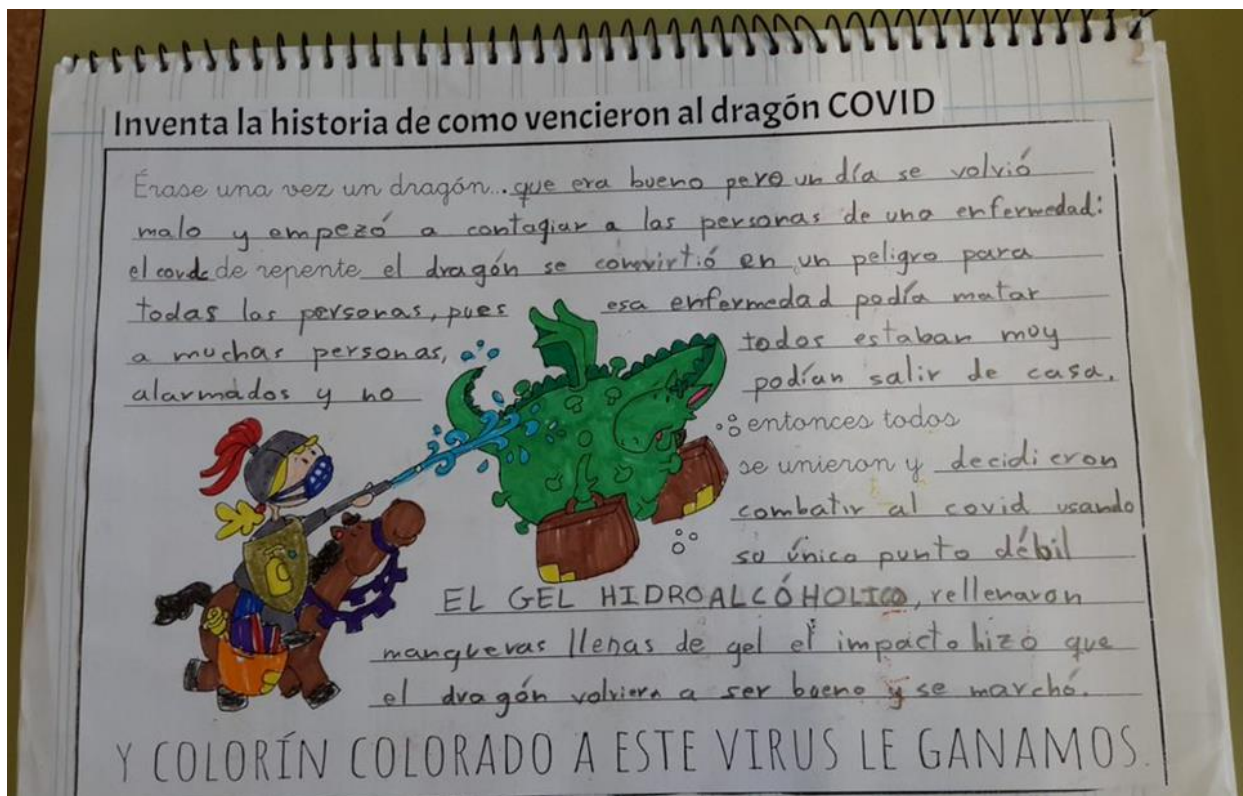 Inventa la historia de como vencieron al dragón COVID
Érase una vez un dragón... que era bueno pero un día se volvió
malo y empezó a contagiar a las personas de una enfermedad:
el covid de repente el dragón se convirtió en un peligro para
todas las personas, pues esa enfermedad podía matar
a muchas personas, todos estaban muy
alarmados y no podían salir de casa.
entonces todos
se unieron y decidieron
combatir al covid usando
su único punto débil
EL GEL HIDROALCÓHOLICO, rellenaron
mangueras llenas de gel el impacto hizó que
el dragón volviera a ser bueno y se marchó.
Y COLORÍN COLORADO A ESTE VIRUS LE GANAMOS.